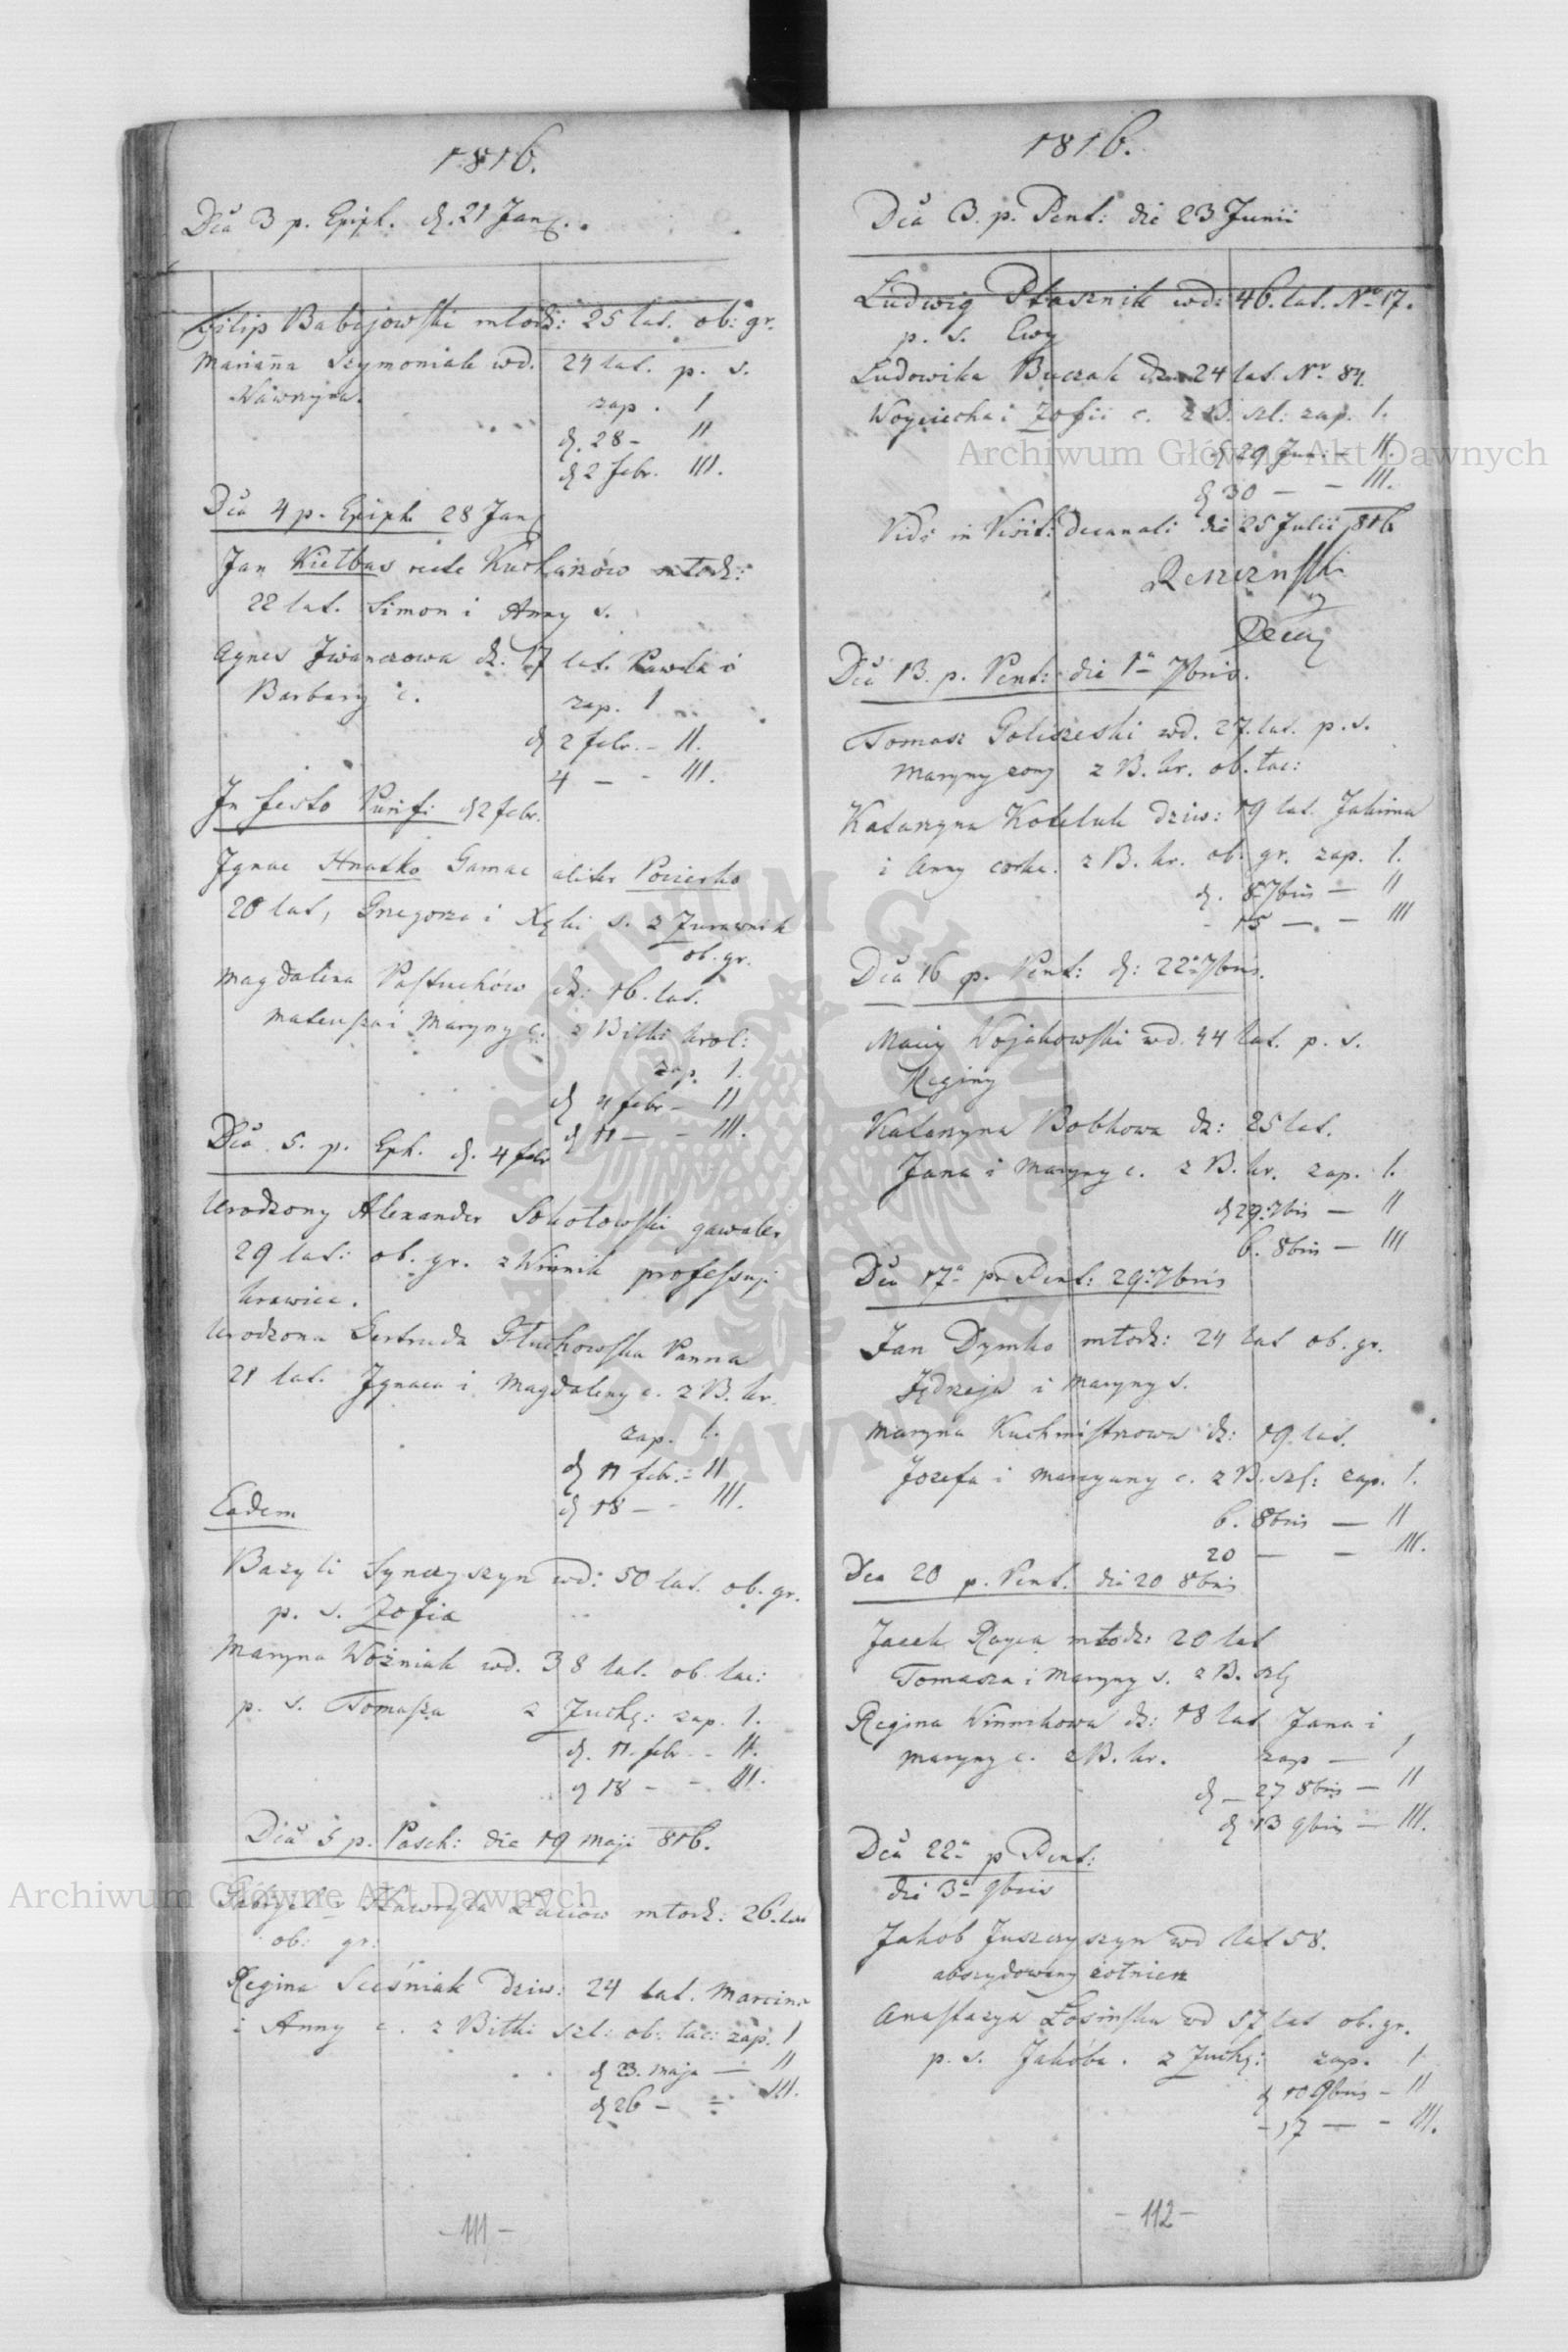 1816.
Dca 3 p. Epiph. d. 21 Jan.
Filip Babijowski młodz: 25 lat. ob: gr.
Marianna Szymoniak wd. 24 lat. p. s.
Wawrzyna.
zap. I
d. 28 - II
d 2 febr. III.
Dca 4 p. Epiph. 28 Jan
Jan Kiełbas recte Kucharzów młodz:
22 lat. Simon i Anny s.
Agnes Iwanczowa dz. 17 lat. Pawła i
Barbary c.
zap. I
d 2 febr. - II.
4 - - III.
In festo Purif: d 2 febr.
Ignac Hnatko Gamac aliter
20 lat, Grzegorza i s. z Zurawnik
ob. gr.
Magdalena Pastuchów dz: 16. lat.
Mateusza i Maryny c. z Biłki krol:
zap. I.
d 4 febr - II
d 11 - - III.
Dca. 5. p. Eph. d. 4 febr
Urodzony Alexander Sokołowski gawaler
29 lat: ob. gr. z Winnik professyi
krawiec.
Urodzona Gertruda Głuchowska Panna
21 lat. Ignaca i Magdaleny c. z B. kr.
zap. I.
d 11 febr. - II
d 18 - - III.
Eadem
Bazyli Synczyszyn wd: 50 lat. ob. gr.
p. s. Zofia
Maryna Woźniak wd. 38 lat. ob. lac:
p. s. Tomasza z Zuch: zap. I.
d. 11. febr. - II.
d 18 - - III.
Dca 5 p. Pasch: die 19 Maji 816.
Gabryel - Hawryła młodz: 26. lat
ob: gr:
Regina Sceśniak dziw: 24 lat. Marcina
i Anny c. z Biłki szl: ob: lac: zap. I
d 23. maja - II
d 26 - - III.
- 111 -
1816.
Dca 3. p. Pent: die 23 Junii
Ludwig Ptasznik wd: 46. lat. Nro 17.
p. s. Ewy
Ludowika Buczak dz 24 lat. Nr 84.
Woyciecha i Zofii c. z B. szl: zap. I.
d 29 Jun: - II.
d 30 - - III.
Vidi in Visit: decanali die 25 Julii 816
Decan
Dca 13. p. Pent: die 1a 7bris.
Tomasz Goliszeski wd. 27. lat. p. s.
Maryny zony z B. kr. ob. lac:
Katarzyna Koteluk dziw: 19 lat. Jakima
i Anny corka. z B. kr. ob. gr. zap. I.
d. 8 7bris - II
- 15 - - III
Dca 16 p. Pent: d: 22a 7bris.
Maciy Wojakowski wd. 44 lat. p. s.
Reginy
Katarzyna Bobkowa dz: 25 lat.
Jana i Maryny c. z B. kr. zap. I.
d 29. 7bris - II
6. 8bris - III
Dca 17a p. Pent: 29a 7bris
Jan Dymko młodz: 24 lat ob. gr.
Jędrzeja i Maryny s.
Maryna Kuchmistrzowa dz: 19. lat.
Jozefa i Maryanny c. z B. szl: zap. I.
6. 8bris - II
20 - - III.
Dca 20 p. Pent. die 20 8bris
Jacek młodz: 20 lat
Tomasza i Maryny s. z B. szl
Regina Winnikowa dz: 18 lat Jana i
Maryny c. z B. kr. zap - I
d - 27 8bris - II
d 13 9bris - III.
Dca 22a p Pent:
die 3a 9bris
Jakob Juszczyszyn wd lat 58.
abszydowany żołnierz
Anastazya Łosinska wd 57 lat ob. gr.
p. s. Jakóba. z Zuch: zap. I
d 10 9bris - II
- 17 - - III.
- 112 -
Archiwum Główne Akt Dawnych
Archiwum Główne Akt Dawnych
ARCHIWUM GŁÓWNE AKT DAWNYCH